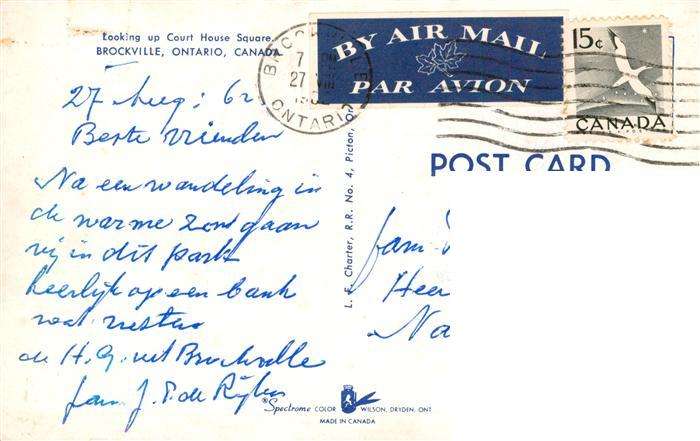 Looking up Court House Square.
BROCKVILLE, ONTARIO, CANADA
BROCKVILLE
27 VIII
ONTARIO
BY AIR MAIL
PAR AVION
15c
CANADA
POST CARD
27 Aug: 62
Beste vrienden
Na een wandeling in
de warme zon gaan
wij in dit park
heerlijk op een bank
wat rusten
de H.G. uit Brockville
fam J. P. de Rijke
fam
Heer
Na
L. F. Charter, R.R. No. 4, Picton,
Spectrome COLOR WILSON, DRYDEN, ONT
MADE IN CANADA